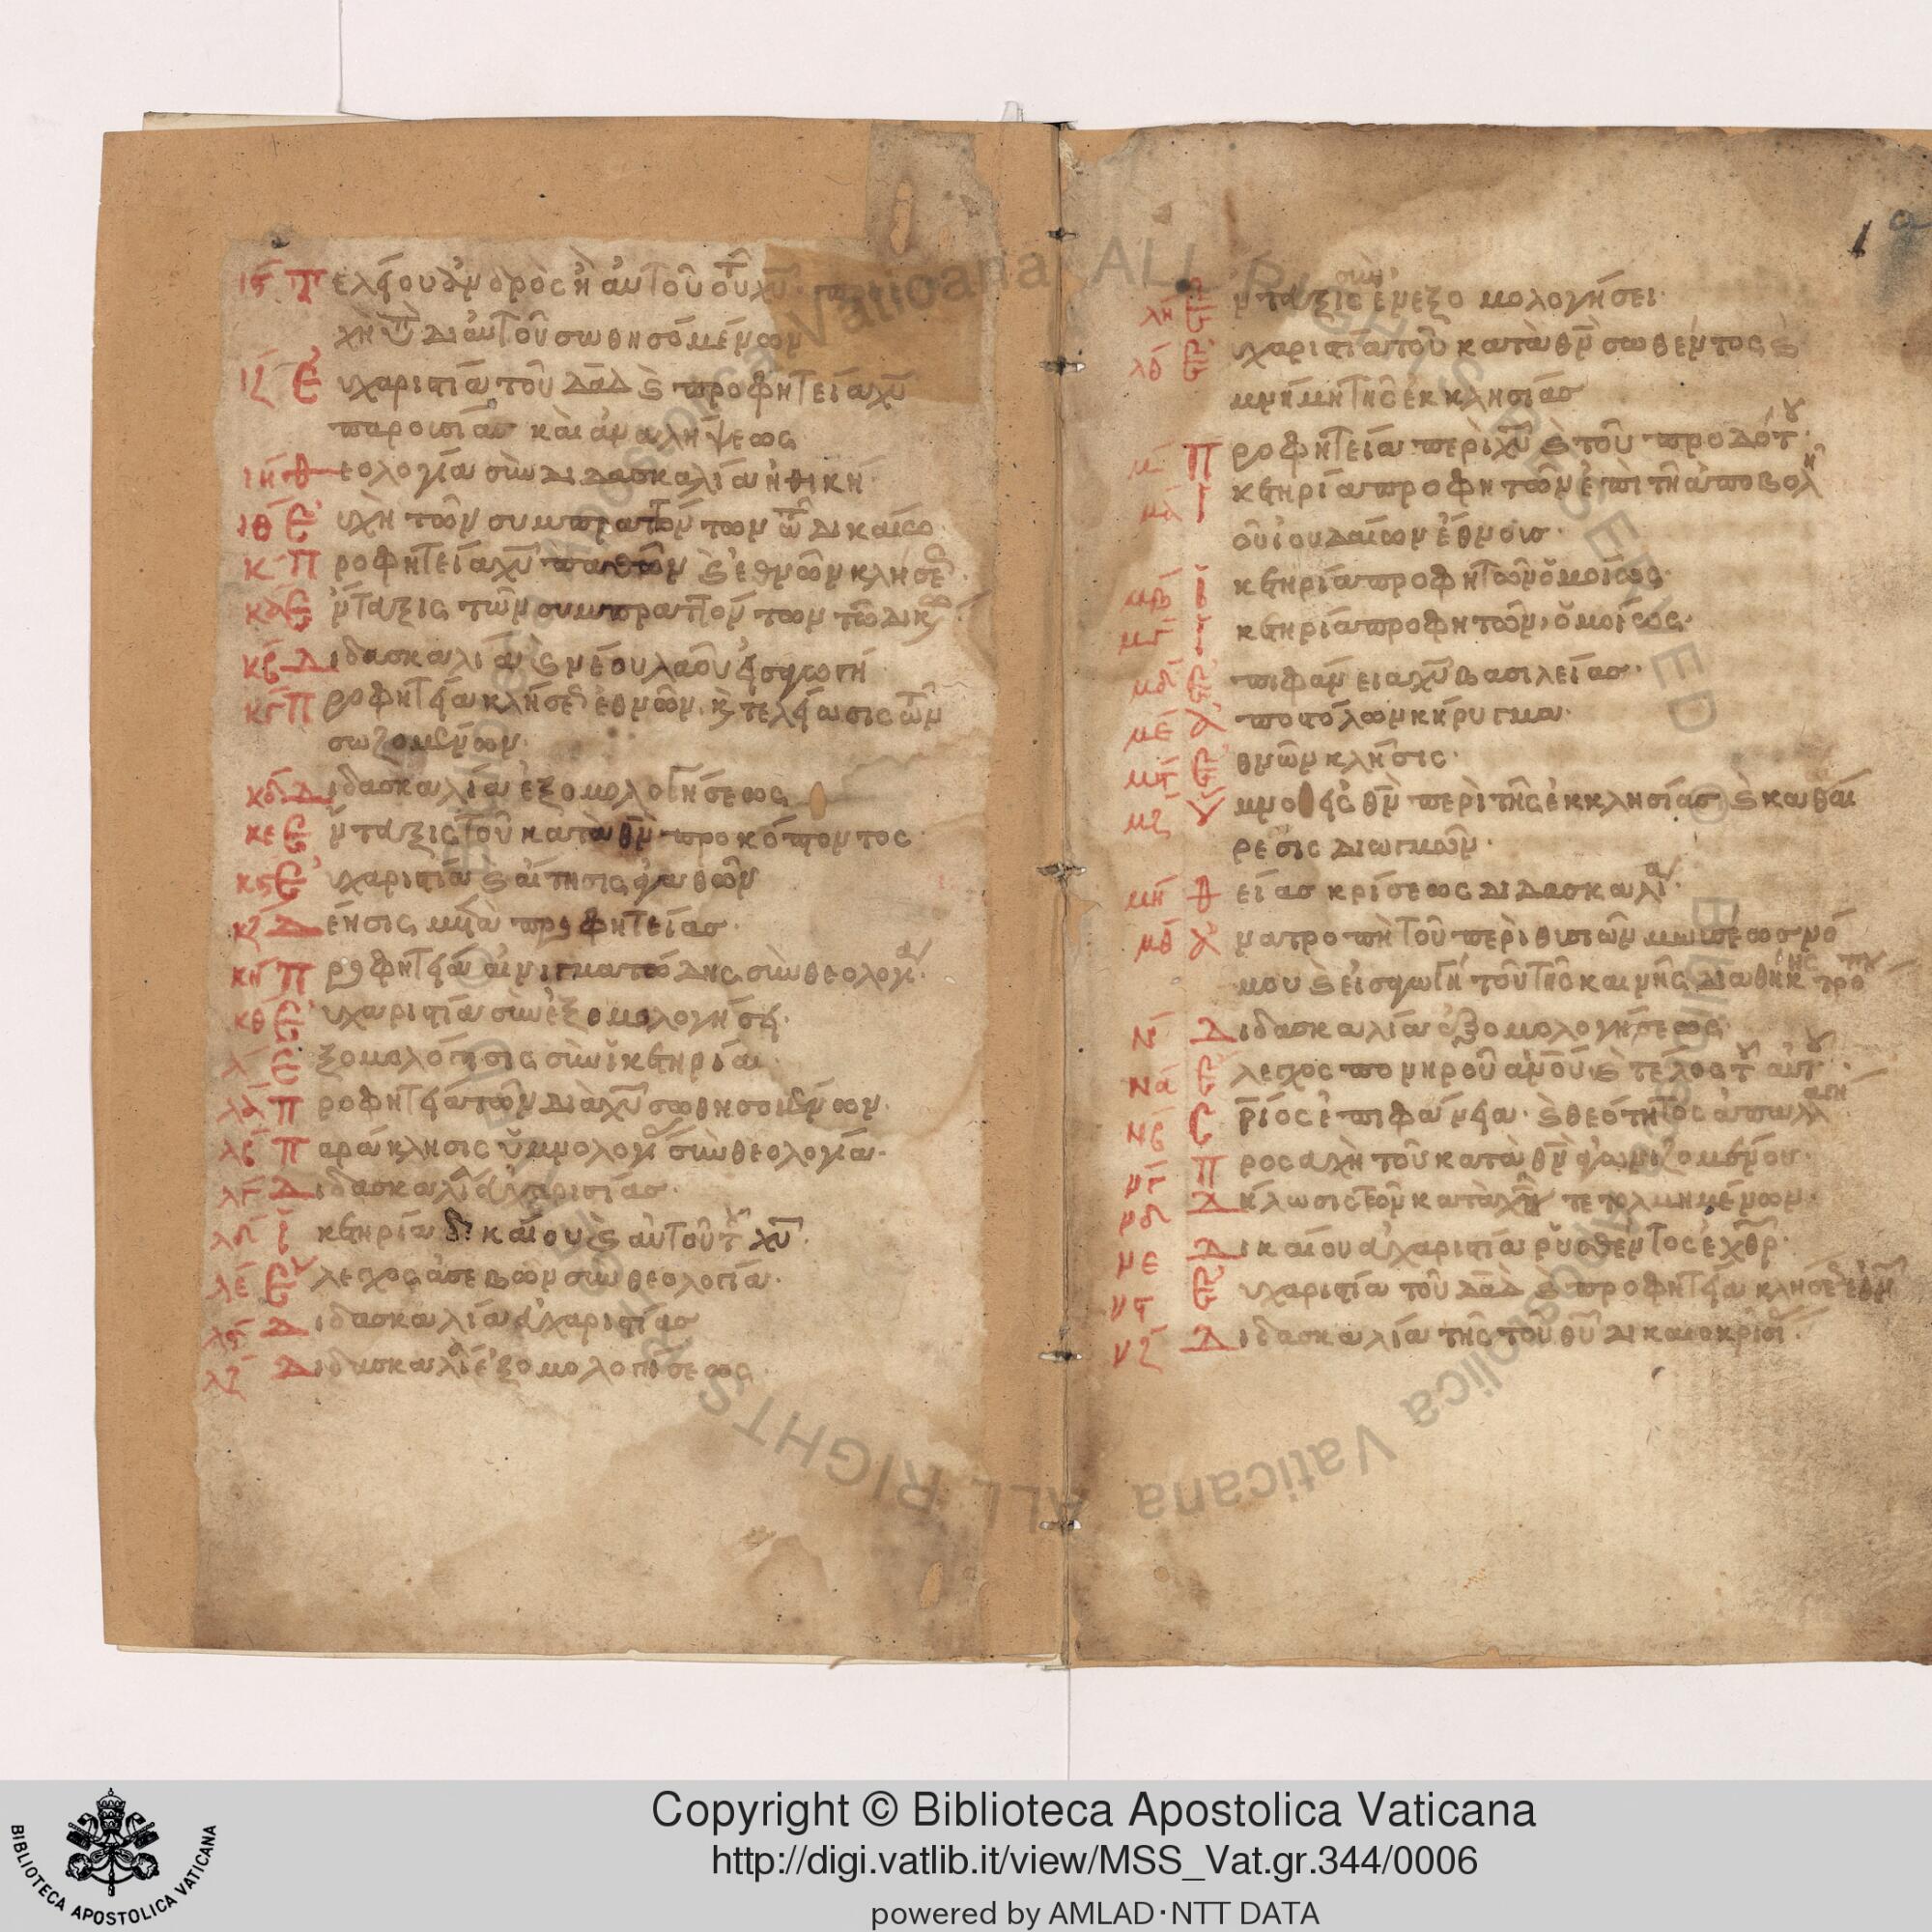 ιϛ Τελείου ἀνδρὸς ἢ αὐτοῦ τοῦ χυ
χὴ τῶν δι αὐτοῦ σωθησομένων
ιζ Εὐχαριστία τοῦ δαδ καὶ προφητεία χυ
παροισίας καὶ ἀναλήψεως
ιη Θεολογία σὺν διδασκαλία ἠθικῆ
ιθ Εὐχὴ τῶν συμπραττόντων τῶ δικαίω
κ Προφητεία χυ παθῶν καὶ ἐθνῶν κλήσεως
κα Ἔνταξις τῶν συμπραττόντων τῶ δικαίω
κβ Διδασκαλία καὶ νέου λαοῦ εἰσαγωγή
κγ Προφητεία κλήσεως ἐθνῶν, καὶ τελείωσις τῶν
σωζομένων
κδ Διδασκαλία ἐξομολογήσεως
κε Ἔνταξις τοῦ κατὰ θν προκόπτοντος
κϛ Εὐχαριστία καὶ αἴτησις ἀγαθῶν
κζ Δέησις μετὰ προφητείας
κη Προφητεία αἰνιγματώδης σὺν θεολογία
κθ Εὐχαριστία σὺν ἐξομολογήσει
λ Ἐξομολόγησις σὺν ἱκετηρία
λα Προφητεία τῶν διὰ χυ σωθησομένων
λβ Παράκλησις ὑμνολογίας σὺν θεολογία
λγ Διδασκαλία εὐχαριστίας
λδ Ἱκετηρία δικαίου καὶ αὐτοῦ τοῦ χυ
λε Ἔλεγχος ἀσεβῶν σὺν θεολογία
λϛ Διδασκαλία εὐχαριστίας
λζ Διδασκαλία ἐξομολογήσεως
λη Ἔνταξις ἐν ἐξομολογήσει
λθ Εὐχαριστία τοῦ κατὰ θν σωθέντος καὶ
μνήμη τῆς ἐκκλησίας
μ Προφητεία περὶ χυ καὶ τοῦ προδότου
μα Ἱκετηρία προφητῶν ἐπὶ τῆ ἀποβολῆ
οὐ ἰουδαίων ἔθνσισ
μβ Ἱκετηρία προφητῶν ὁμοίως
μγ Ἱκετηρία προφητῶν, ὁμοίως
μδ Ἐπιφάνεια χυ βασιλείας
με Ἀποστόλων κήρυγμα
μϛ Ἐθνῶν κλῆσις
μζ Ὕμνος εἰς θν περὶ τῆς ἐκκλησίας καὶ καθαί
ρεσις διωγμῶν
μη Θείας κρίσεως διδασκαλία
μθ Ἀνατροπὴ τοῦ περὶ θυσιῶν μωσέως νό
μου καὶ εἰσαγωγὴ τοῦ τῆς καινῆς διαθήκης τρόπου
ν Διδασκαλία ἐξομολογήσεως
να Ἔλεγχος πονηροῦ ἀνου καὶ τέλος τοῦ αὐτοῦ
νβ ριος ἐπιφάνεια καὶ θεότητος ἀπωλ
νγ Προσευχὴ τοῦ κατὰ θν ἀγωνιζομένου
νδ Δήλωσις τῶν κατὰ χυ τετολμημένων
νε Δικαίου εὐχαριστία ῥυσθέντος ἐχθρ
νϛ Εὐχαριστία τοῦ δαδ καὶ προφητεία κλήσεως ἐθν
νζ Διδασκαλία τῆς τοῦ θυ δικαιοκρισί
1
Copyright © Biblioteca Apostolica Vaticana
http://digi.vatlib.it/view/MSS_Vat.gr.344/0006
powered by AMLAD·NTT DATA
BIBLIOTECA APOSTOLICA VATICANA